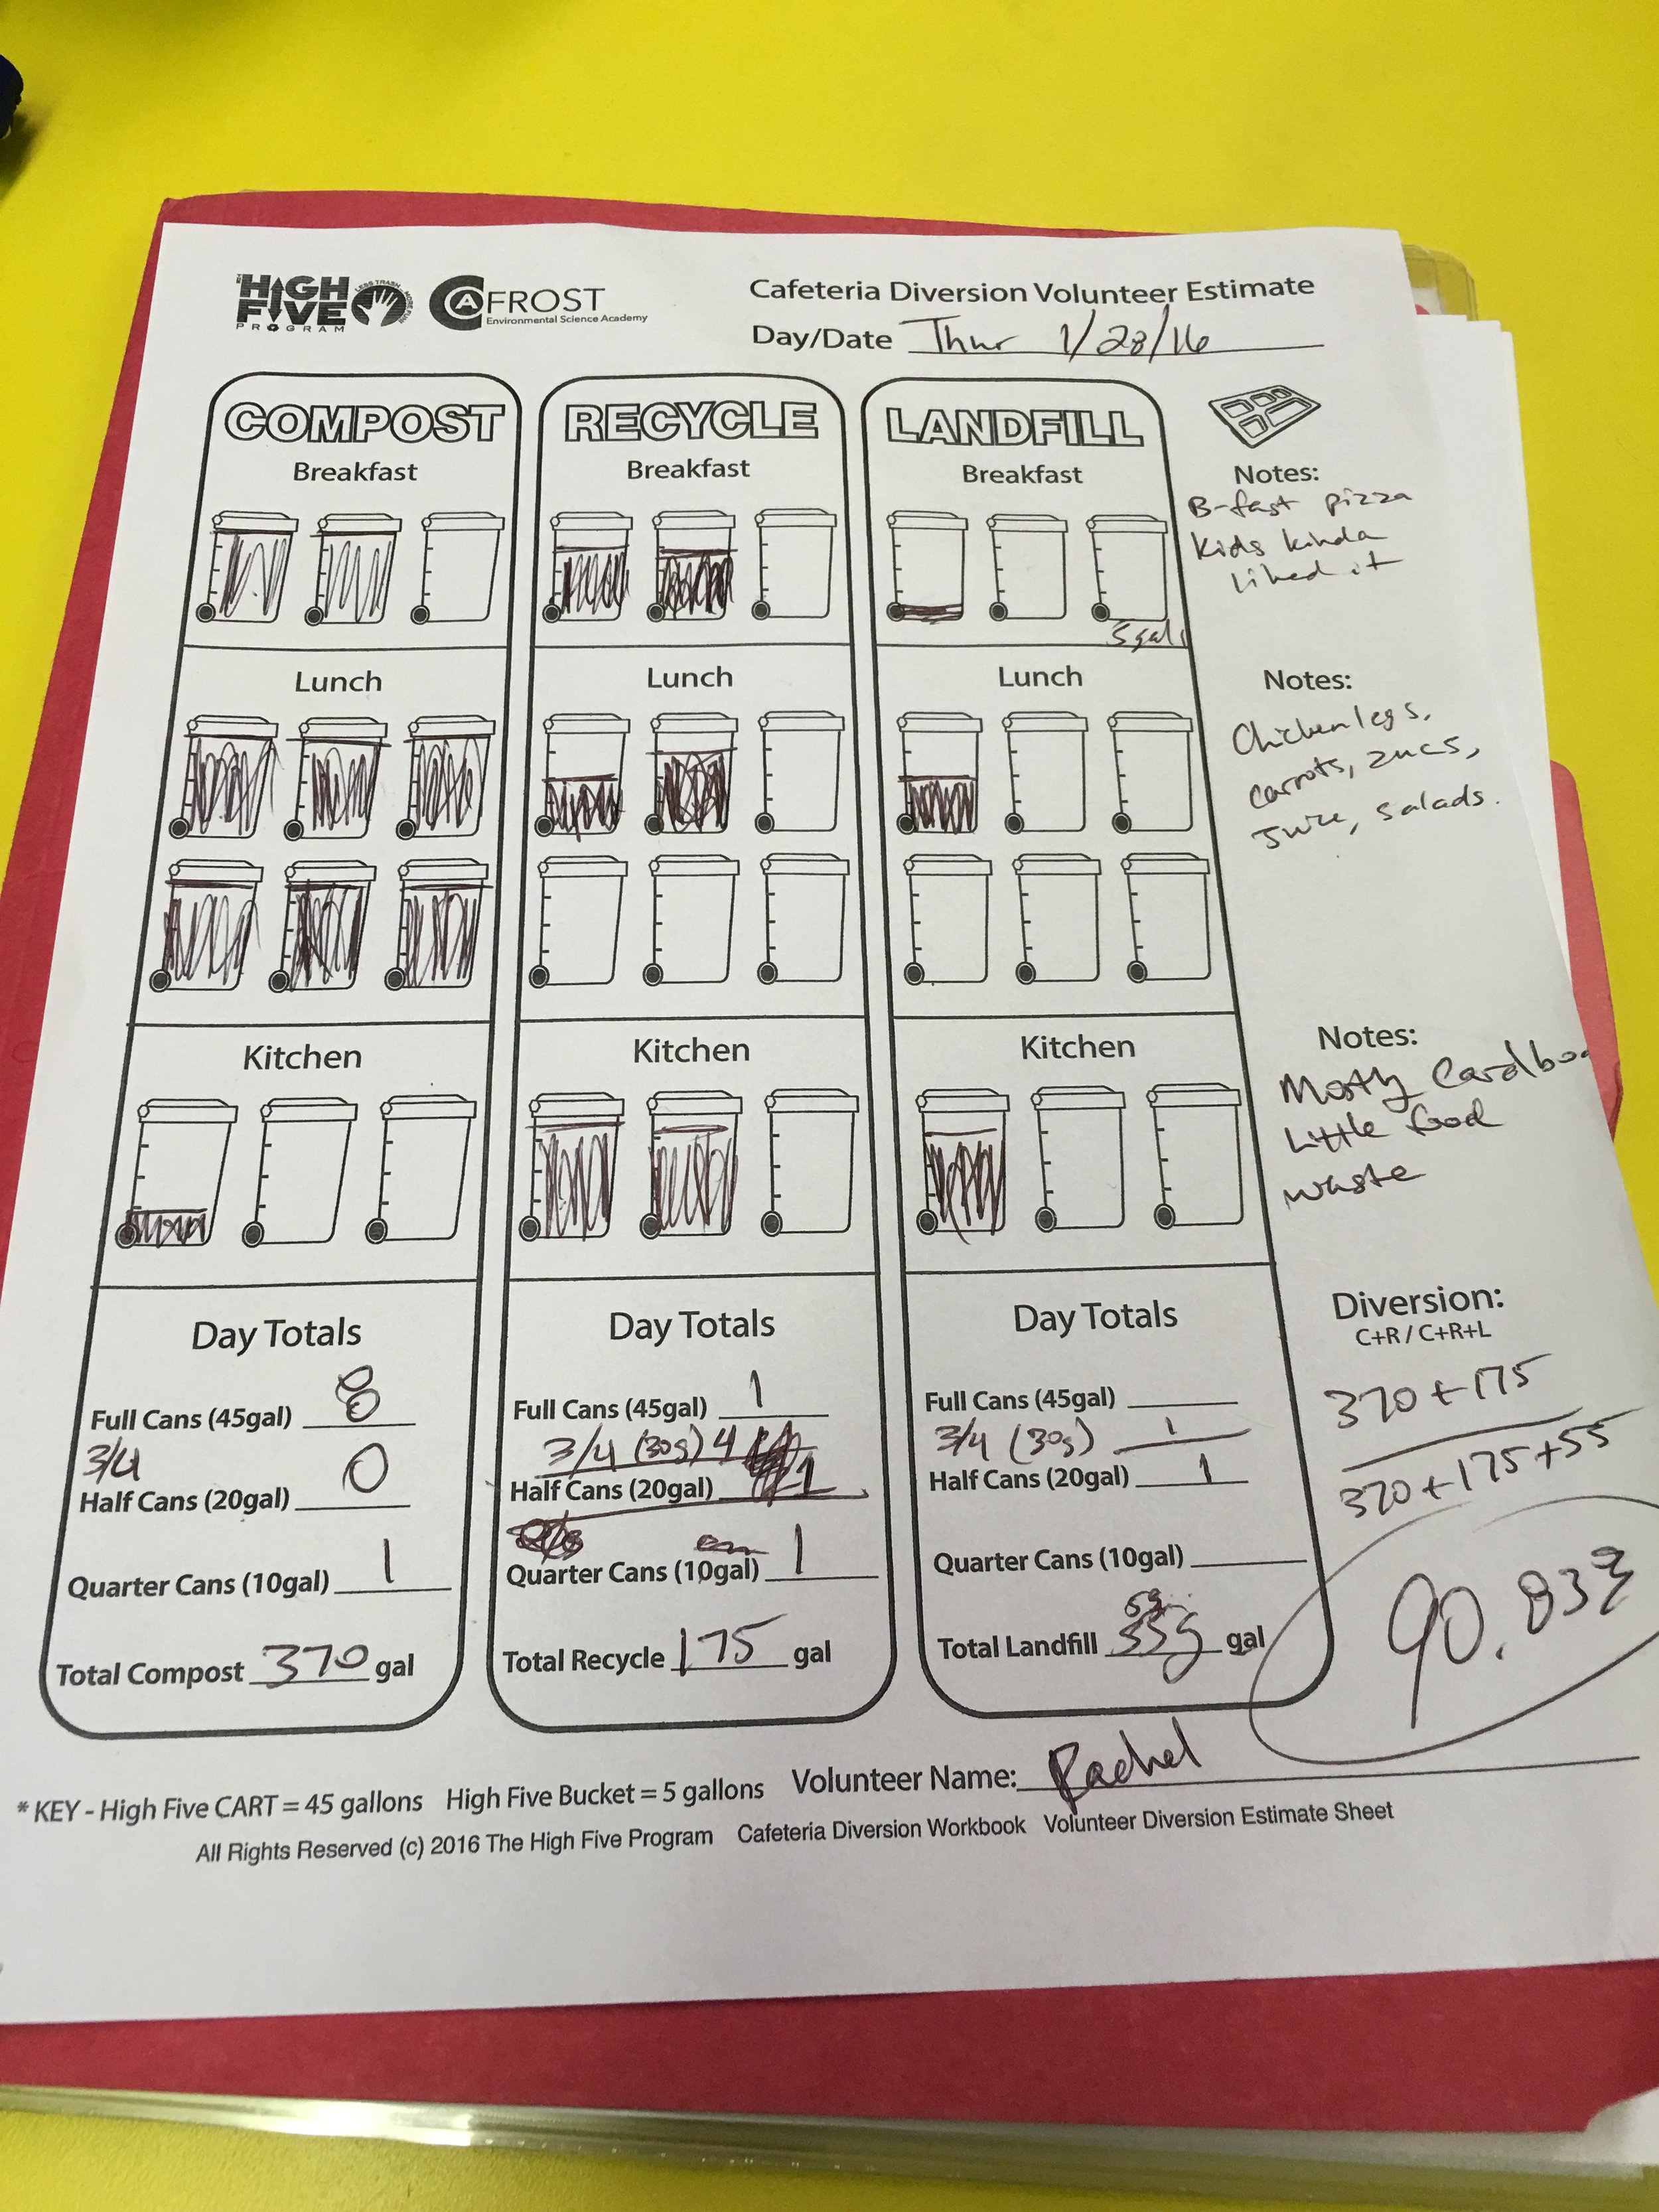 THE HIGH FIVE PROGRAM
LESS TRASH. MORE FUN!
CA FROST
Environmental Science Academy
Cafeteria Diversion Volunteer Estimate
Day/Date Thur 1/28/16
COMPOST
Breakfast
Lunch
Kitchen
Day Totals
Full Cans (45gal) 8
3/4
Half Cans (20gal) 0
Quarter Cans (10gal) 1
Total Compost 370 gal
RECYCLE
Breakfast
Lunch
Kitchen
Day Totals
Full Cans (45gal) 1
3/4 (30g) 4
Half Cans (20gal) 1
Quarter Cans (10gal) 1
Total Recycle 175 gal
LANDFILL
Breakfast
5 gal
Lunch
Kitchen
Day Totals
Full Cans (45gal)
3/4 (30g) 1
Half Cans (20gal) 1
Quarter Cans (10gal)
5g
Total Landfill 55g gal
Notes:
B-fast pizza
Kids kinda
liked it
Notes:
Chicken legs,
carrots, zucs,
Juice, salads.
Notes:
Mostly Cardboa
Little food
waste
Diversion:
C+R / C+R+L
370 + 175
370 + 175 + 55
90.83%
Volunteer Name: Rachel
* KEY - High Five CART = 45 gallons High Five Bucket = 5 gallons
All Rights Reserved (c) 2016 The High Five Program Cafeteria Diversion Workbook Volunteer Diversion Estimate Sheet